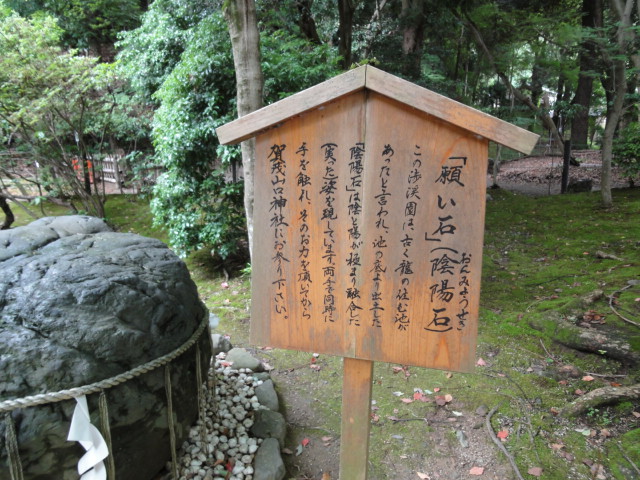 「願い石」(陰陽石)
おんみょうせき
この渉渓園は、古く龍の住む池が
あったと言われ、池の底より出土した
「陰陽石」は陰と陽が極まり融合した
(真の)姿を現しています。両手で同時に
手を触れ、そのお力を頂いてから
賀茂山口神社にお参り下さい。